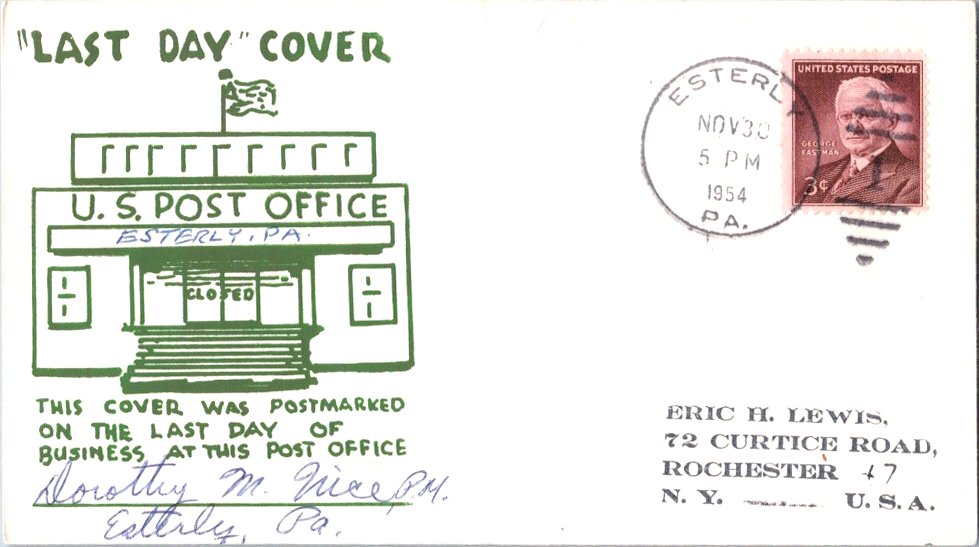 "LAST DAY" COVER
U.S. POST OFFICE
ESTERLY, PA.
CLOSED
THIS COVER WAS POSTMARKED
ON THE LAST DAY OF
BUSINESS AT THIS POST OFFICE
Dorothy M. Nice, P.M.
Esterly, Pa.
ESTERLY
NOV 30
5 PM
1954
PA.
UNITED STATES POSTAGE
GEORGE
EASTMAN
3¢
1
ERIC H. LEWIS,
72 CURTICE ROAD,
ROCHESTER 17
N. Y. U. S. A.